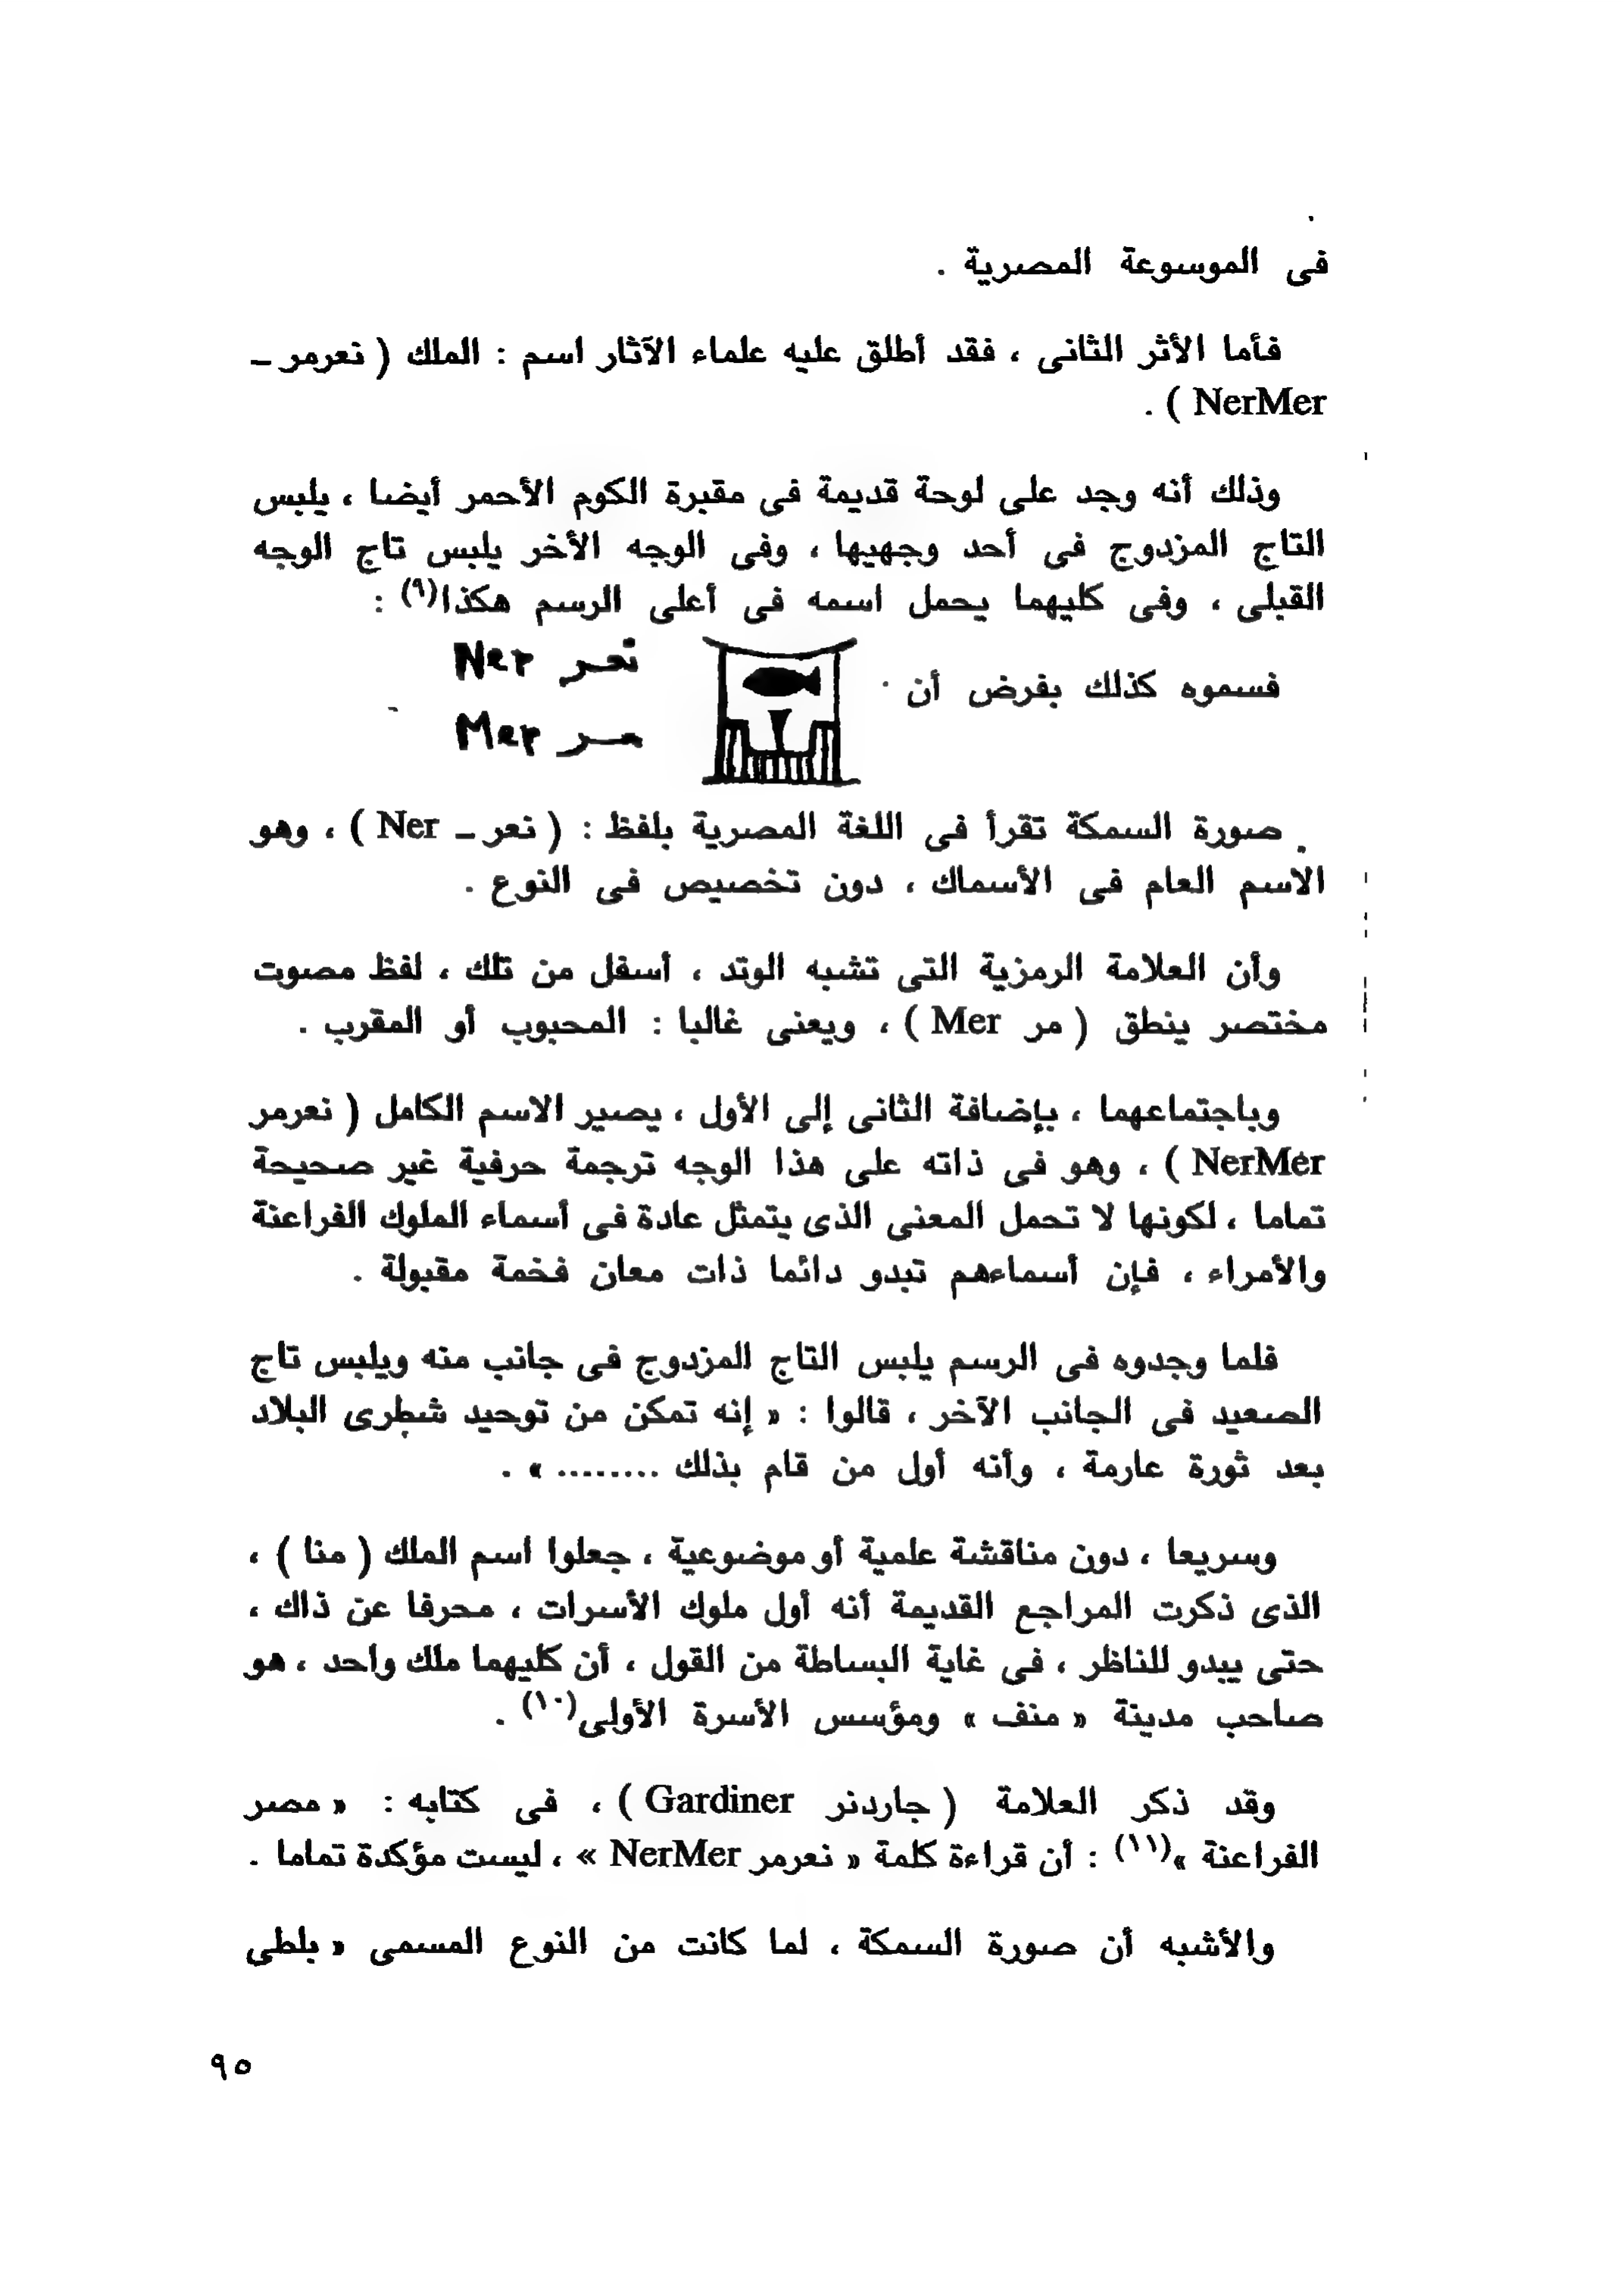 فى الموسوعة المصرية .
فأما الأثر الثانى ، فقد أطلق عليه علماء الآثار اسم : الملك ( نعرمر ـ
NerMer ) .
وذلك أنه وجد على لوحة قديمة فى مقبرة الكوم الأحمر أيضا ، يلبس
التاج المزدوج فى أحد وجهيها ، وفى الوجه الأخر يلبس تاج الوجه
القبلى ، وفى كليهما يحمل اسمه فى أعلى الرسم هكذا(٩) :
نعر Ner
فسموه كذلك بفرض أن
مر Mer
صورة السمكة تقرأ فى اللغة المصرية بلفظ : ( نعر ـ Ner ) ، وهو
الاسم العام فى الأسماك ، دون تخصيص فى النوع .
وأن العلامة الرمزية التى تشبه الوتد ، أسفل من تلك ، لفظ مصوت
مختصر ينطق ( مر Mer ) ، ويعنى غالبا : المحبوب أو المقرب .
وباجتماعهما ، بإضافة الثانى إلى الأول ، يصير الاسم الكامل ( نعرمر
NerMer ) ، وهو فى ذاته على هذا الوجه ترجمة حرفية غير صحيحة
تماما ، لكونها لا تحمل المعنى الذى يتمثل عادة فى أسماء الملوك الفراعنة
والأمراء ، فإن أسماءهم تبدو دائما ذات معان فخمة مقبولة .
فلما وجدوه فى الرسم يلبس التاج المزدوج فى جانب منه ويلبس تاج
الصعيد فى الجانب الآخر ، قالوا : « إنه تمكن من توحيد شطرى البلاد
بعد ثورة عارمة ، وأنه أول من قام بذلك ........ » .
وسريعا ، دون مناقشة علمية أو موضوعية ، جعلوا اسم الملك ( منا ) ،
الذى ذكرت المراجع القديمة أنه أول ملوك الأسرات ، محرفا عن ذاك ،
حتى يبدو للناظر ، فى غاية البساطة من القول ، أن كليهما ملك واحد ، هو
صاحب مدينة « منف » ومؤسس الأسرة الأولى(١٠) .
وقد ذكر العلامة ( جاردنر Gardiner ) ، فى كتابه : « مصر
الفراعنة »(١١) : أن قراءة كلمة « نعرمر NerMer » ، ليست مؤكدة تماما .
والأشبه أن صورة السمكة ، لما كانت من النوع المسمى « بلطى
٩٥